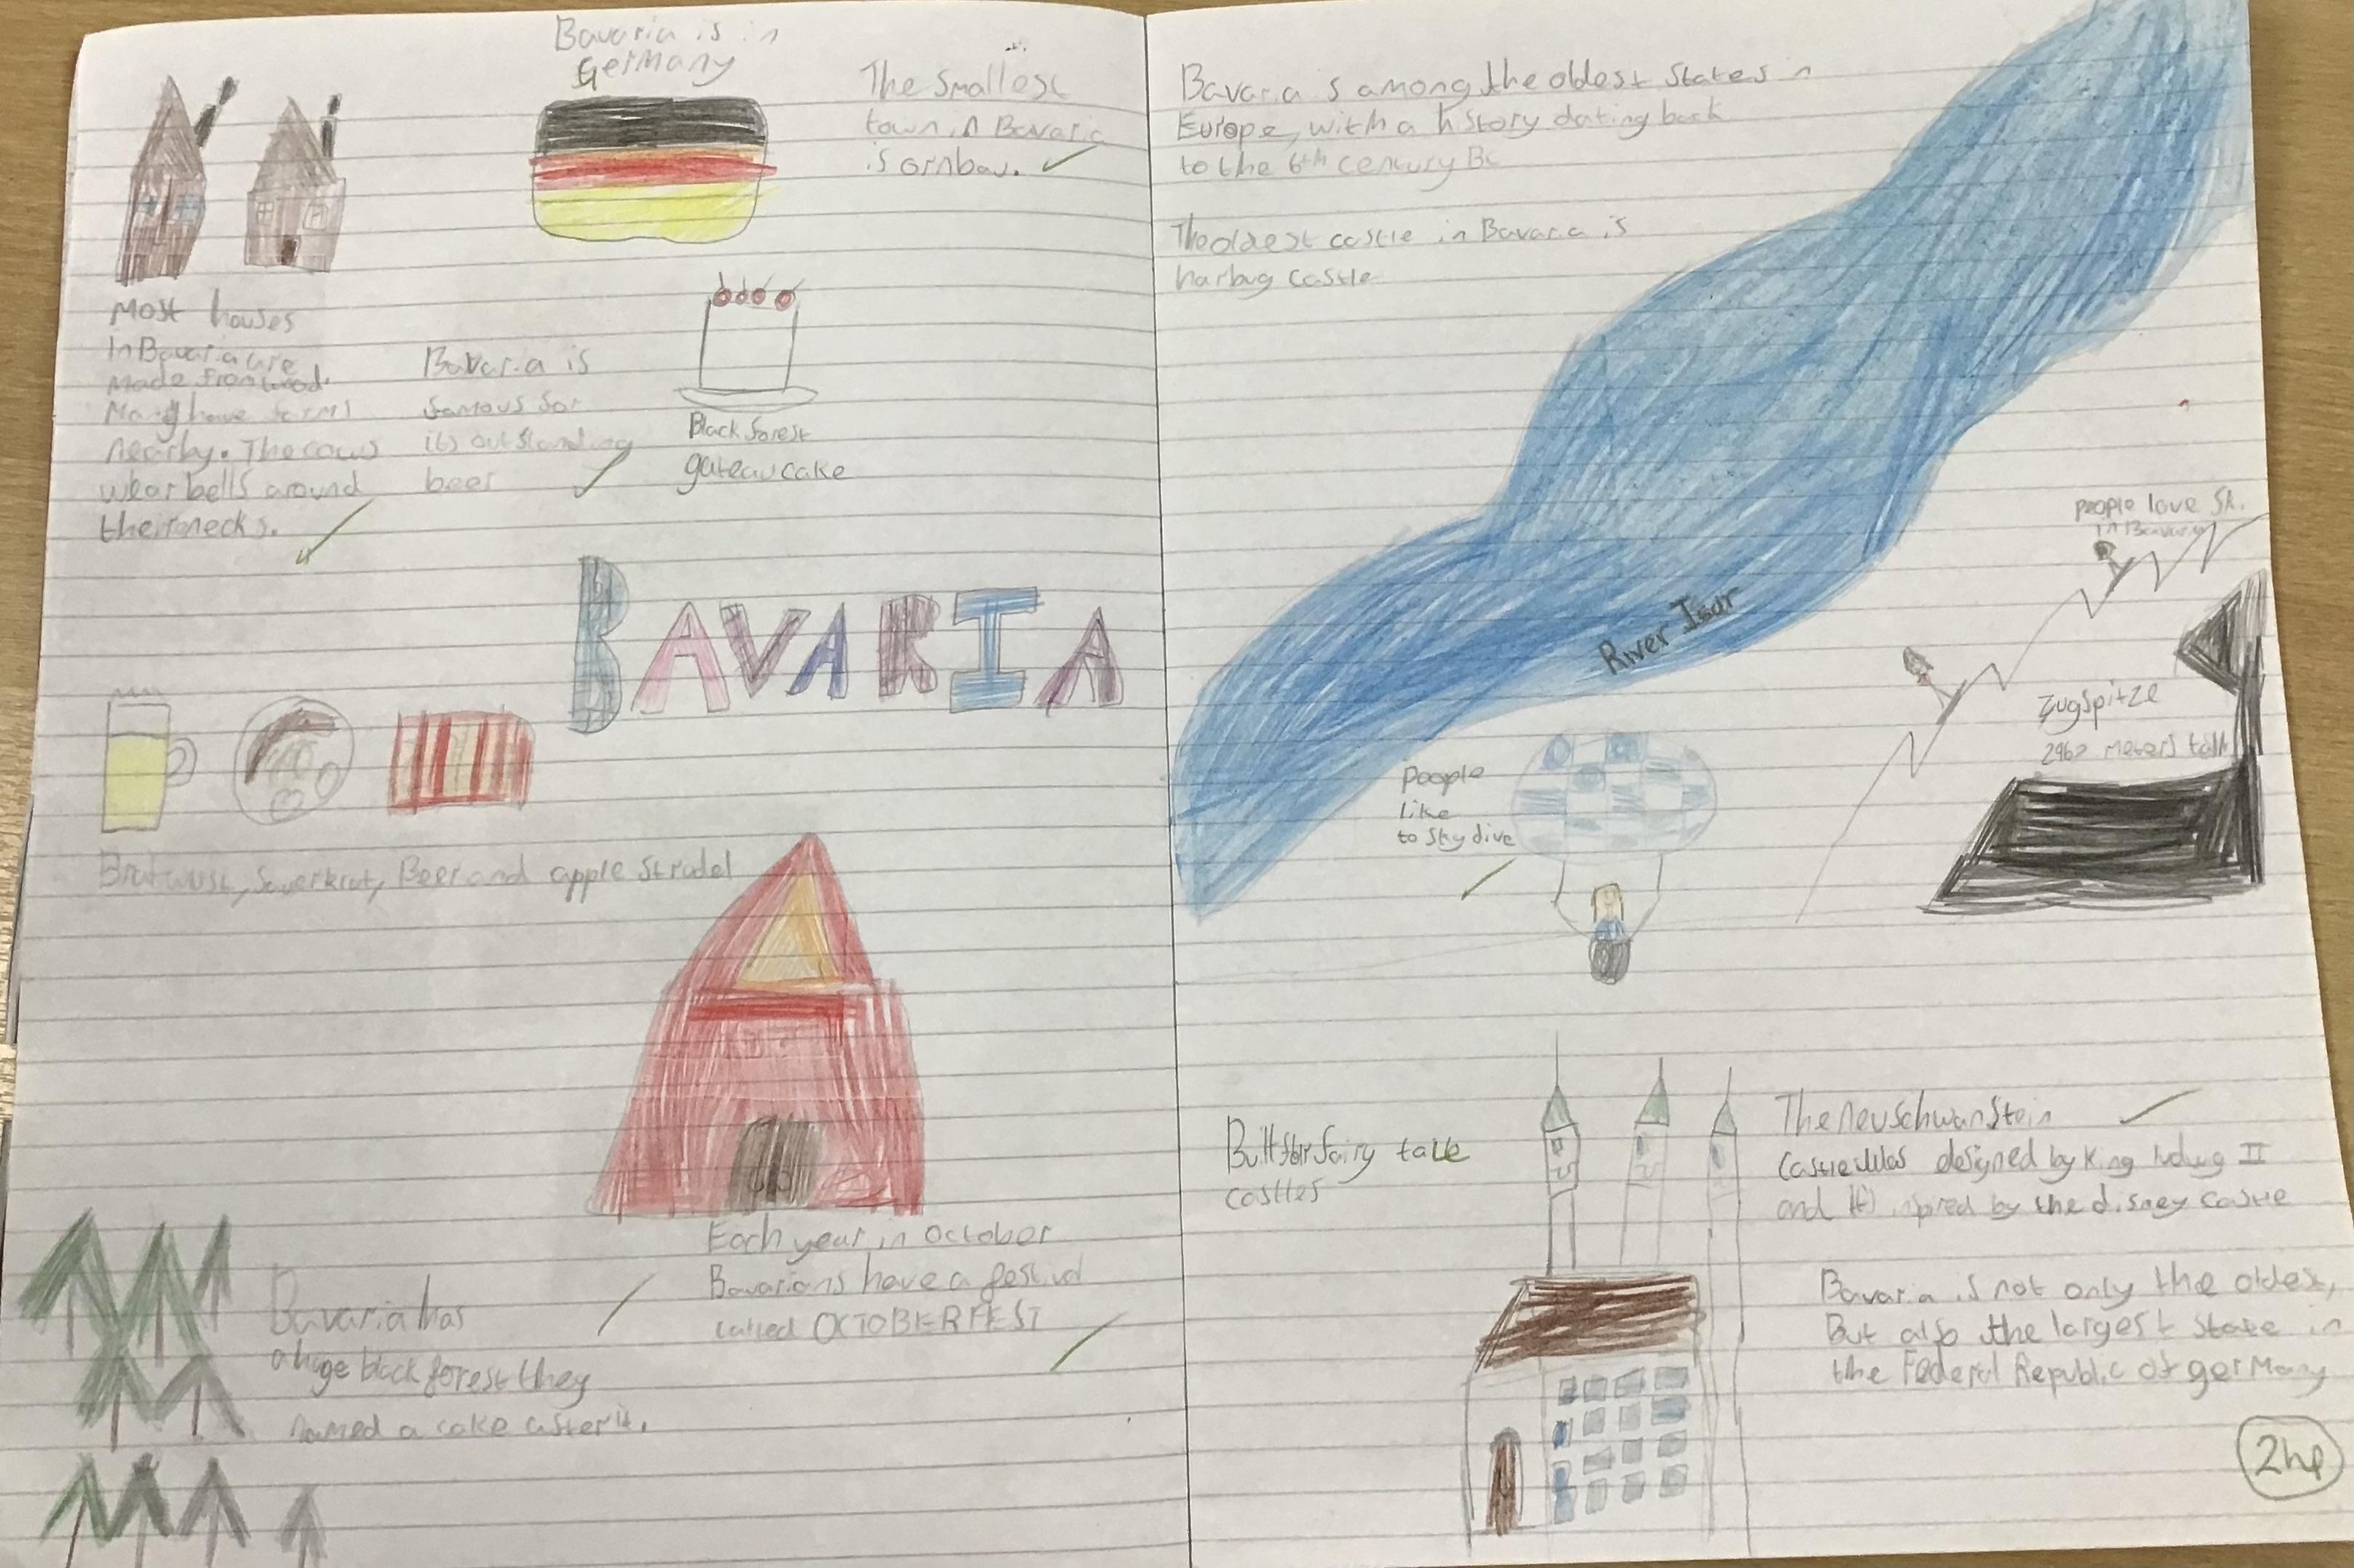 Bavaria is in
Germany
The smallest
town in Bavaria
is ornbau.
Most houses
In Bavaria are
Made from wood.
Many have farms
nearby. The cows
wear bells around
their necks.
Bavaria is
famous for
its outstanding
beer
Black forest
gateau cake
BAVARIA
Bratwust, Sauerkrat, Beer and apple Strudel
Each year in october
Bavarians have a festival
called OCTOBERFEST
Bavaria has
a huge black forest they
named a cake after it.
Bavaria is among the oldest States in
Europe, with a history dating back
to the 6th century BC
The oldest castle in Bavaria is
harbug castle
River Isar
people love Ski
in Bavaria
Zugspitze
2962 meters tall
people
like
to sky dive
Built for fairy tale
castles
The neuschwanstein
Castle was designed by King ludwig II
and inspired by the disney castle
Bavaria is not only the oldest,
But also the largest state in
the Federal Republic of germany
2hp